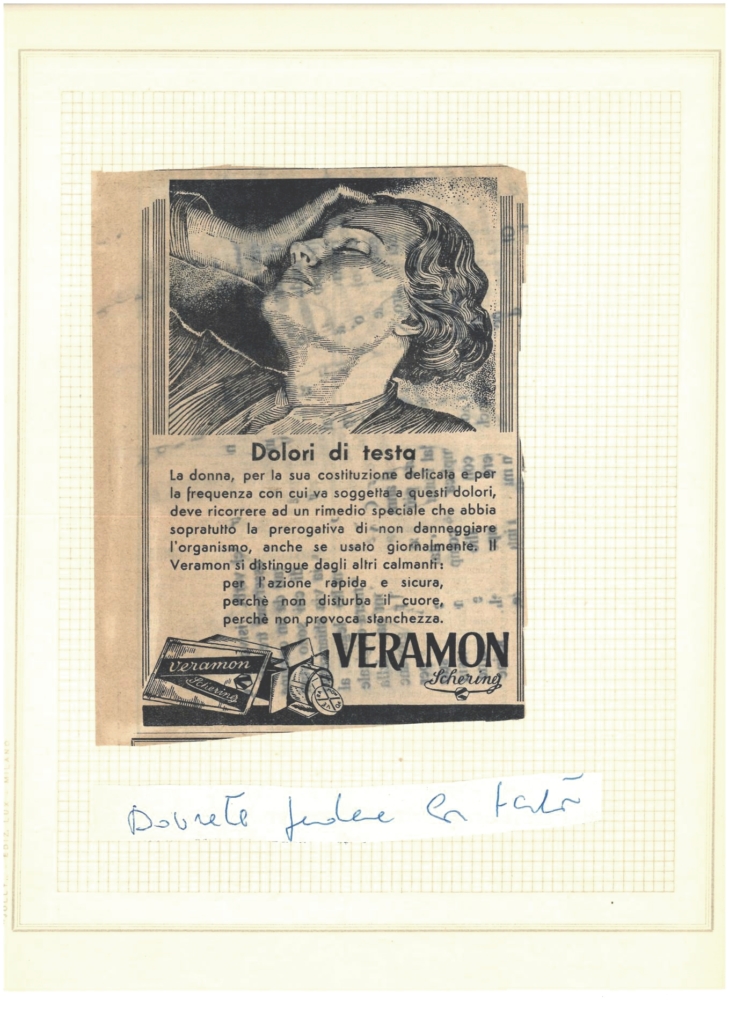 Dolori di testa
La donna, per la sua costituzione delicata e per
la frequenza con cui va soggetta a questi dolori,
deve ricorrere ad un rimedio speciale che abbia
sopratutto la prerogativa di non danneggiare
l'organismo, anche se usato giornalmente. Il
Veramon si distingue dagli altri calmanti:
per l'azione rapida e sicura,
perchè non disturba il cuore,
perchè non provoca stanchezza.
VERAMON
Schering
veramon
Schering
Dovrete